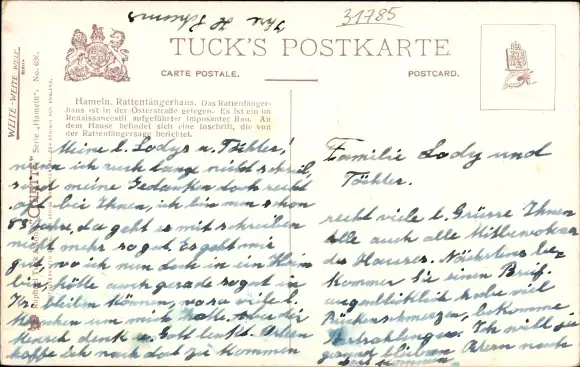 31785
TUCK'S POSTKARTE
CARTE POSTALE.
POSTCARD.
Hameln. Rattenfängerhaus. Das Rattenfänger-
haus ist in der Osterstraße gelegen. Es ist ein im
Renaissancestil aufgeführter imposanter Bau. An
dem Hause befindet sich eine Inschrift, die von
der Rattenfängersage berichtet.
Serie „Hameln". No. 606.
Meine l. Lodys u. Töchter!
wenn ich auch lange nicht schrieb,
sind meine Gedanken doch recht
oft bei Ihnen, ich bin nun schon
83 Jahre, da geht es mit schreiben
nicht mehr so gut. Es geht mir
gut, wo ich nun doch in ein Heim
bin, hätte auch gerade so gut in
bleiben können, wo so viele l.
Menschen um mich hatte, aber der
Mensch denkt u. Gott lenkt. Ostern
hoffe ich nach dort zu kommen
Familie Lody und
Töchter.
recht viele l. Grüsse Ihnen
alle auch alle Mitbewohner
des Hauses. Nächstens be-
kommen Sie einen Brief.
augenblicklich habe viel
Rückenschmerzen, bekomme
Bestrahlungen. Ich will
gesund bleiben Ostern nach
dort kommen